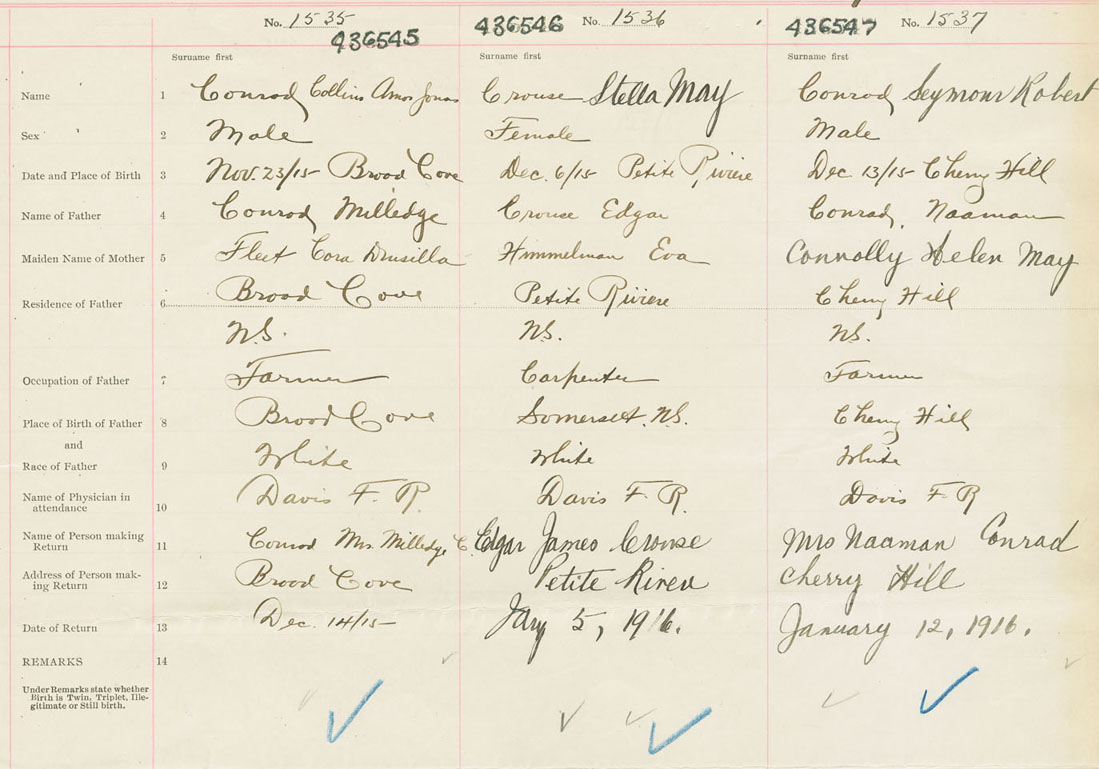 No. 1535 436546 No. 1536 436547 No. 1537
436545
Surname first Surname first Surname first
Name 1 Conrad Collins Amos Jonas Crouse Stella May Conrad Seymour Robert
Sex 2 Male Female Male
Date and Place of Birth 3 Nov. 23/15 Broad Cove Dec. 6/15 Petite Riviere Dec 13/15 Cherry Hill
Name of Father 4 Conrad Milledge Crouse Edgar Conrad, Naaman
Maiden Name of Mother 5 Fleet Cora Drusilla Himmelman Eva Connolly Helen May
Residence of Father 6 Broad Cove Petite Riviere Cherry Hill
N.S. N.S. N.S.
Occupation of Father 7 Farmer Carpenter Farmer
Place of Birth of Father 8 Broad Cove Somerset. N.S. Cherry Hill
and
Race of Father 9 White White White
Name of Physician in
attendance 10 Davis F. R. Davis F. R. Davis F R
Name of Person making
Return 11 Conrad Mrs. Milledge C. Edgar James Crouse Mrs Naaman Conrad
Address of Person mak-
ing Return 12 Broad Cove Petite Cherry Hill
Date of Return 13 Dec. 14/15 Jany 5, 1916. January 12, 1916.
REMARKS 14
Under Remarks state whether
Birth is Twin, Triplet, Ille-
gitimate or Still birth.